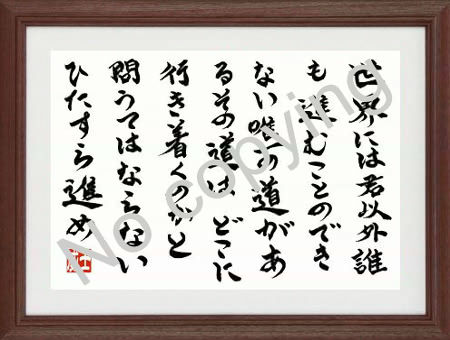 世界には君以外誰
も進むことのでき
ない唯一の道があ
るその道は、どこに
行き着くのかと
問うてはならない
ひたすら進め
No copying